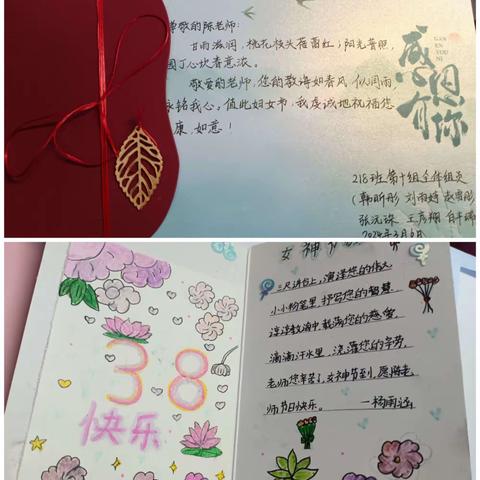 尊敬的陈老师:
甘雨滋润,桃花枝头蓓蕾红;阳光普照,
园丁心坎春意浓。
敬爱的老师,您的教诲如春风,似润雨,
永铭我心。值此妇女节,我虔诚地祝福您
康,如意!
感恩有你
GAN
EN
YOU
NI
218班第十组全体组员
(韩昕彤 刘雨婷
张沅琛 王彦翔
2024年3月6日
38
快乐
女神
三尺讲台上,演绎您的伟大
小小粉笔里,抒写您的智慧
谆谆教诲中,载满您的慈爱
滴滴汗水里,浇灌您的辛劳
老师您辛苦了,女神节到,愿您老
师节日快乐。 一杨雨涵